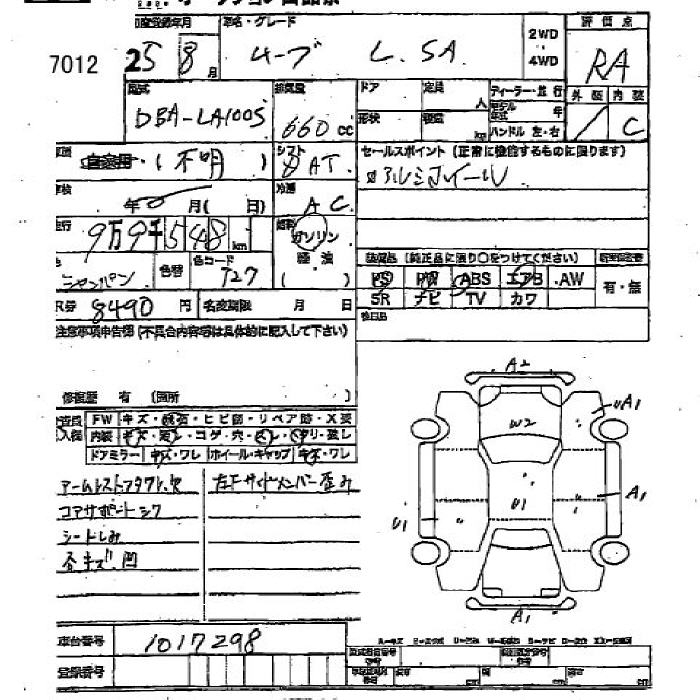 車名・グレード 2WD 評価点
7012 25 8 月 ムーブ L. SA 4WD RA
型式 排気量 ドア 定員 ディーラー・並行 外装 内装
DBA-LA100S 660 CC 人 モデル年式 年 C
形状 積載 km ハンドル 左・右
自家用・(不明) シフト AT. セールスポイント(正常に機能するものに限ります)
年 月( 日) 冷房 AC アルミホイール
9万9千548 km ガソリン
軽油
シャンパン 色替 色コード T27 ( )
装備品(純正品に限り○をつけてください)
PS PW ABS エアB .AW 有・無
SR ナビ TV カワ
R券 8490 円 名変期限 月 日
注意事項申告欄(不具合内容等は具体的に記入して下さい)
修復歴 有 (箇所 )
FW キズ・飛石・ヒビ跡・リペア跡・X要
内装 キズ・汚レ・コゲ・穴・スレ・ヘタリ・残し
ドアミラー キズ・ワレ ホイール・キャップ キズ・ワレ
左F サイドメンバー歪み
コアサポートシワ
シートしみ
各キズ.凹
A2
UA1
W2
U1
A1
U1
A1
車台番号 1017298
登録番号